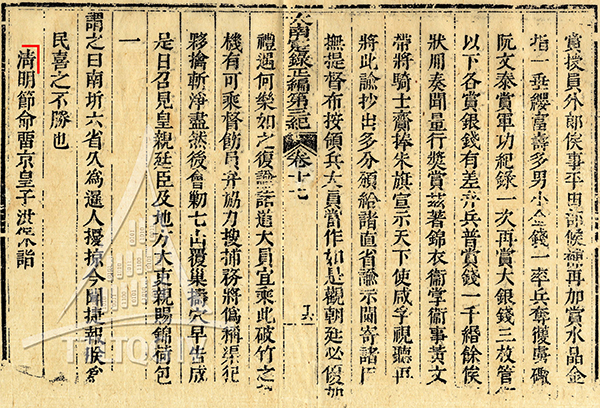 賞援員外郎俟事平因部候補再加賞水晶金
指一垂纓富壽多男小金錢一率兵奪復虜礮
阮文泰賞軍功紀錄一次再賞大銀錢三枚管
以下各賞銀錢有差弁兵普賞錢一千緡餘俟
狀用奏聞量行獎賞茲著錦衣衞掌衞事黃文
帶將騎士齎捧朱旗宣示天下使咸孚視聽再
將此諭抄出多分頒給諸直省諭示閫寄諸
撫提督布按領兵大員當作如是觀朝廷必優加
大南寔錄正編第三紀 卷十七
禮遇何樂如之復諭諸道大員宜乘此破竹之
機有可乘督飭員弁協力搜捕務將偽稱渠犯
夥擒斬淨盡然後會勦七山覆巢搗穴早告成
是日召見皇親廷臣及地方大吏親賜錦荷包
一
謂之曰南圻六省久為暹人擾掠今聞捷報朕為
民喜之不勝也
清明節命留京皇子洪保詣